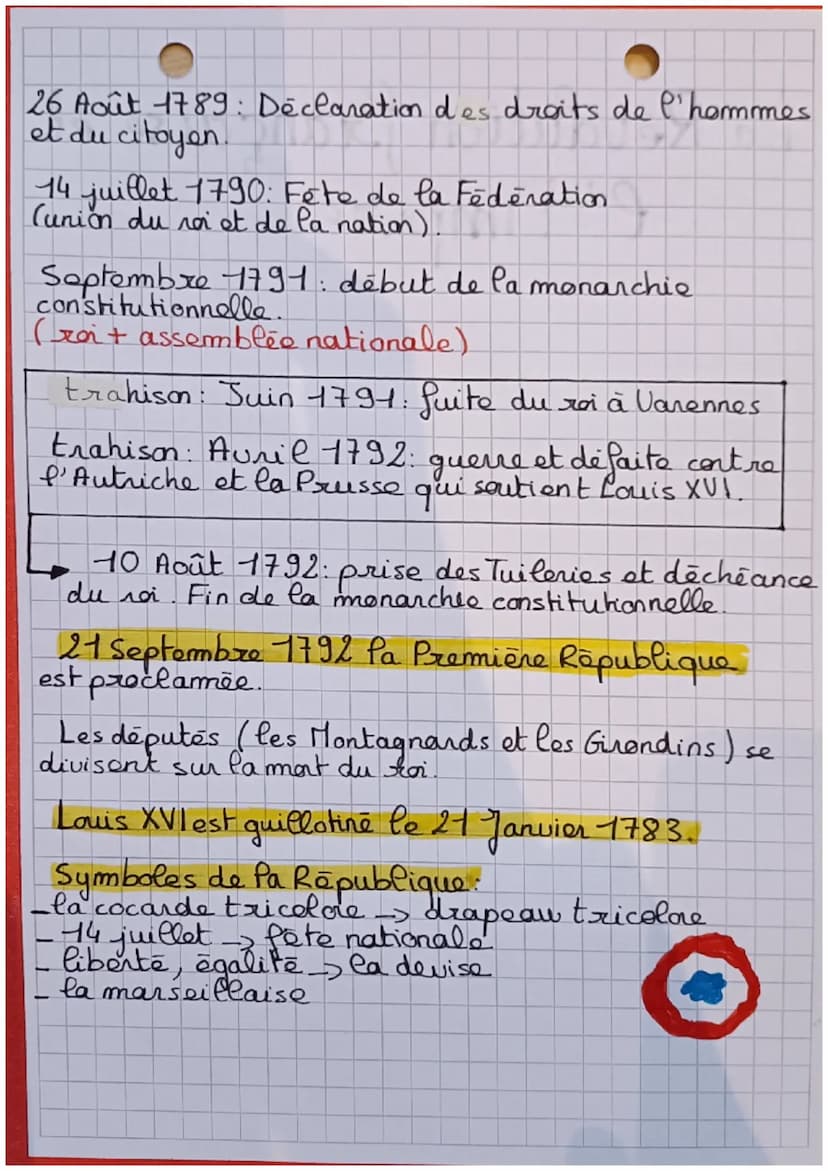 26 Août 1789 : Déclaration des droits de l'hommes
et du citoyen.
14 juillet 1790 : Fête de la Fédération
(union du roi et de la nation).
Septembre 1791 : début de la monarchie
constitutionnelle.
(roi + assemblée nationale)
trahison : Juin 1791 : fuite du roi à Varennes
trahison : Avril 1792 : guerre et défaite contre
l'Autriche et la Prusse qui soutient Louis XVI.
→ 10 Août 1792 : prise des Tuileries et déchéance
du roi. Fin de la monarchie constitutionnelle.
21 Septembre 1792 la Première République
est proclamée.
Les députés (les Montagnards et les Girondins) se
divisent sur la mort du roi.
Louis XVI est guillotiné le 21 Janvier 1783.
Symboles de la République :
- la cocarde tricolore → drapeau tricolore
- 14 juillet → fête nationale
- liberté, égalité → la devise
- la marseillaise